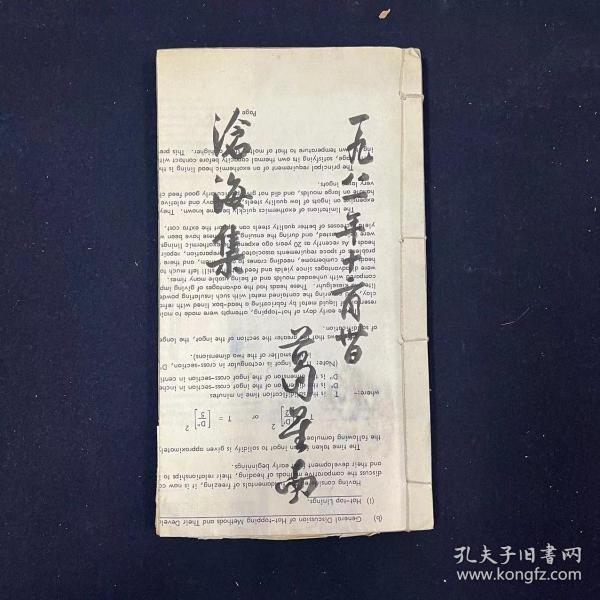 一九八一年十二月昔
滄海集
葛星南
Page
(b) General Discussion of Hot-topping Methods and Their Devel
(1) Hot-top Linings.
Having considered fundamentals of freezing, it is now
discuss the comparative methods of heading, their relationship to
and their development early beginnings.
The time taken ingot to solidify is given approximatel
the following formulae:
T = [D"/2]² or T = [D"/5]²
where:- T is the solidification time in minutes
D" is the dimension of the ingot cross-section in inche
D" is the dimension of the ingot cross-section in centi
(Note: If the ingot is rectangular in cross-section, D"
smaller of the two dimensions).
that the greater the section of the ingot, the longe
of solidification.
early days of hot-topping, attempts were made to
of liquid metal by fabricating a head-box lined with refr
the contained metal with such insulating powder
These heads had the advantages of giving imp
compared with unheaded moulds and of being usable many times.
were disadvantages since yields and feed still left much to
heads cumbersome, needing cranes and there
problems of space requirements
head. As recently as 20 years ago exothermic
were and during the ensuing have been
yield successes of better quality steels can the extra cost.
The limitations of exothermics quickly became known. They
expensive on ingots of low quality steels, very and relative
handle on large moulds, and did not give particularly good feed
very large ingots.
The principal requirement of an exothermic head lining is th
page, satisfying its own thermal capacity before contact with
own temperature to that of molten higher. This pre
孔夫子旧書网
www.kongfz.com